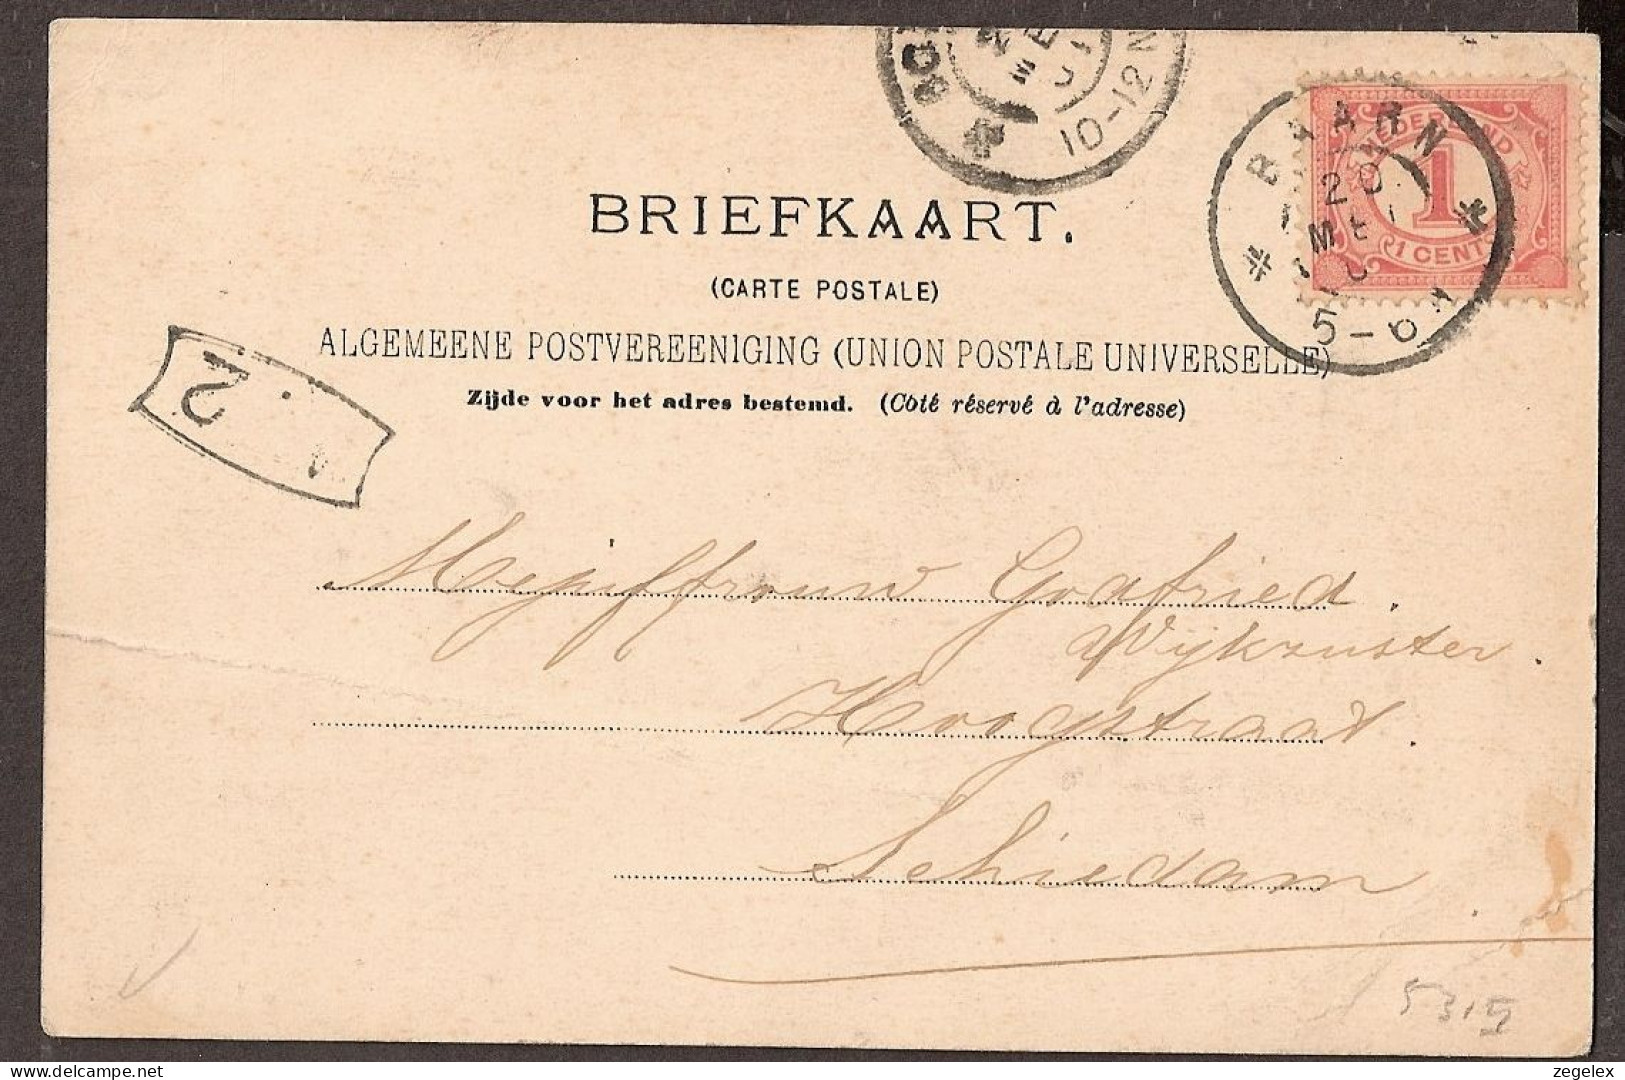 10-12 N
BAARN
20
ME
5-6 N
NEDERLAND
1
1 CENT
BRIEFKAART.
(CARTE POSTALE)
ALGEMEENE POSTVEREENIGING (UNION POSTALE UNIVERSELLE)
Zijde voor het adres bestemd. (Côté réservé à l'adresse)
2
Mejuffrouw Godfried.
Wijkzuster.
Hoogstraat.
Schiedam
5315
zegelex